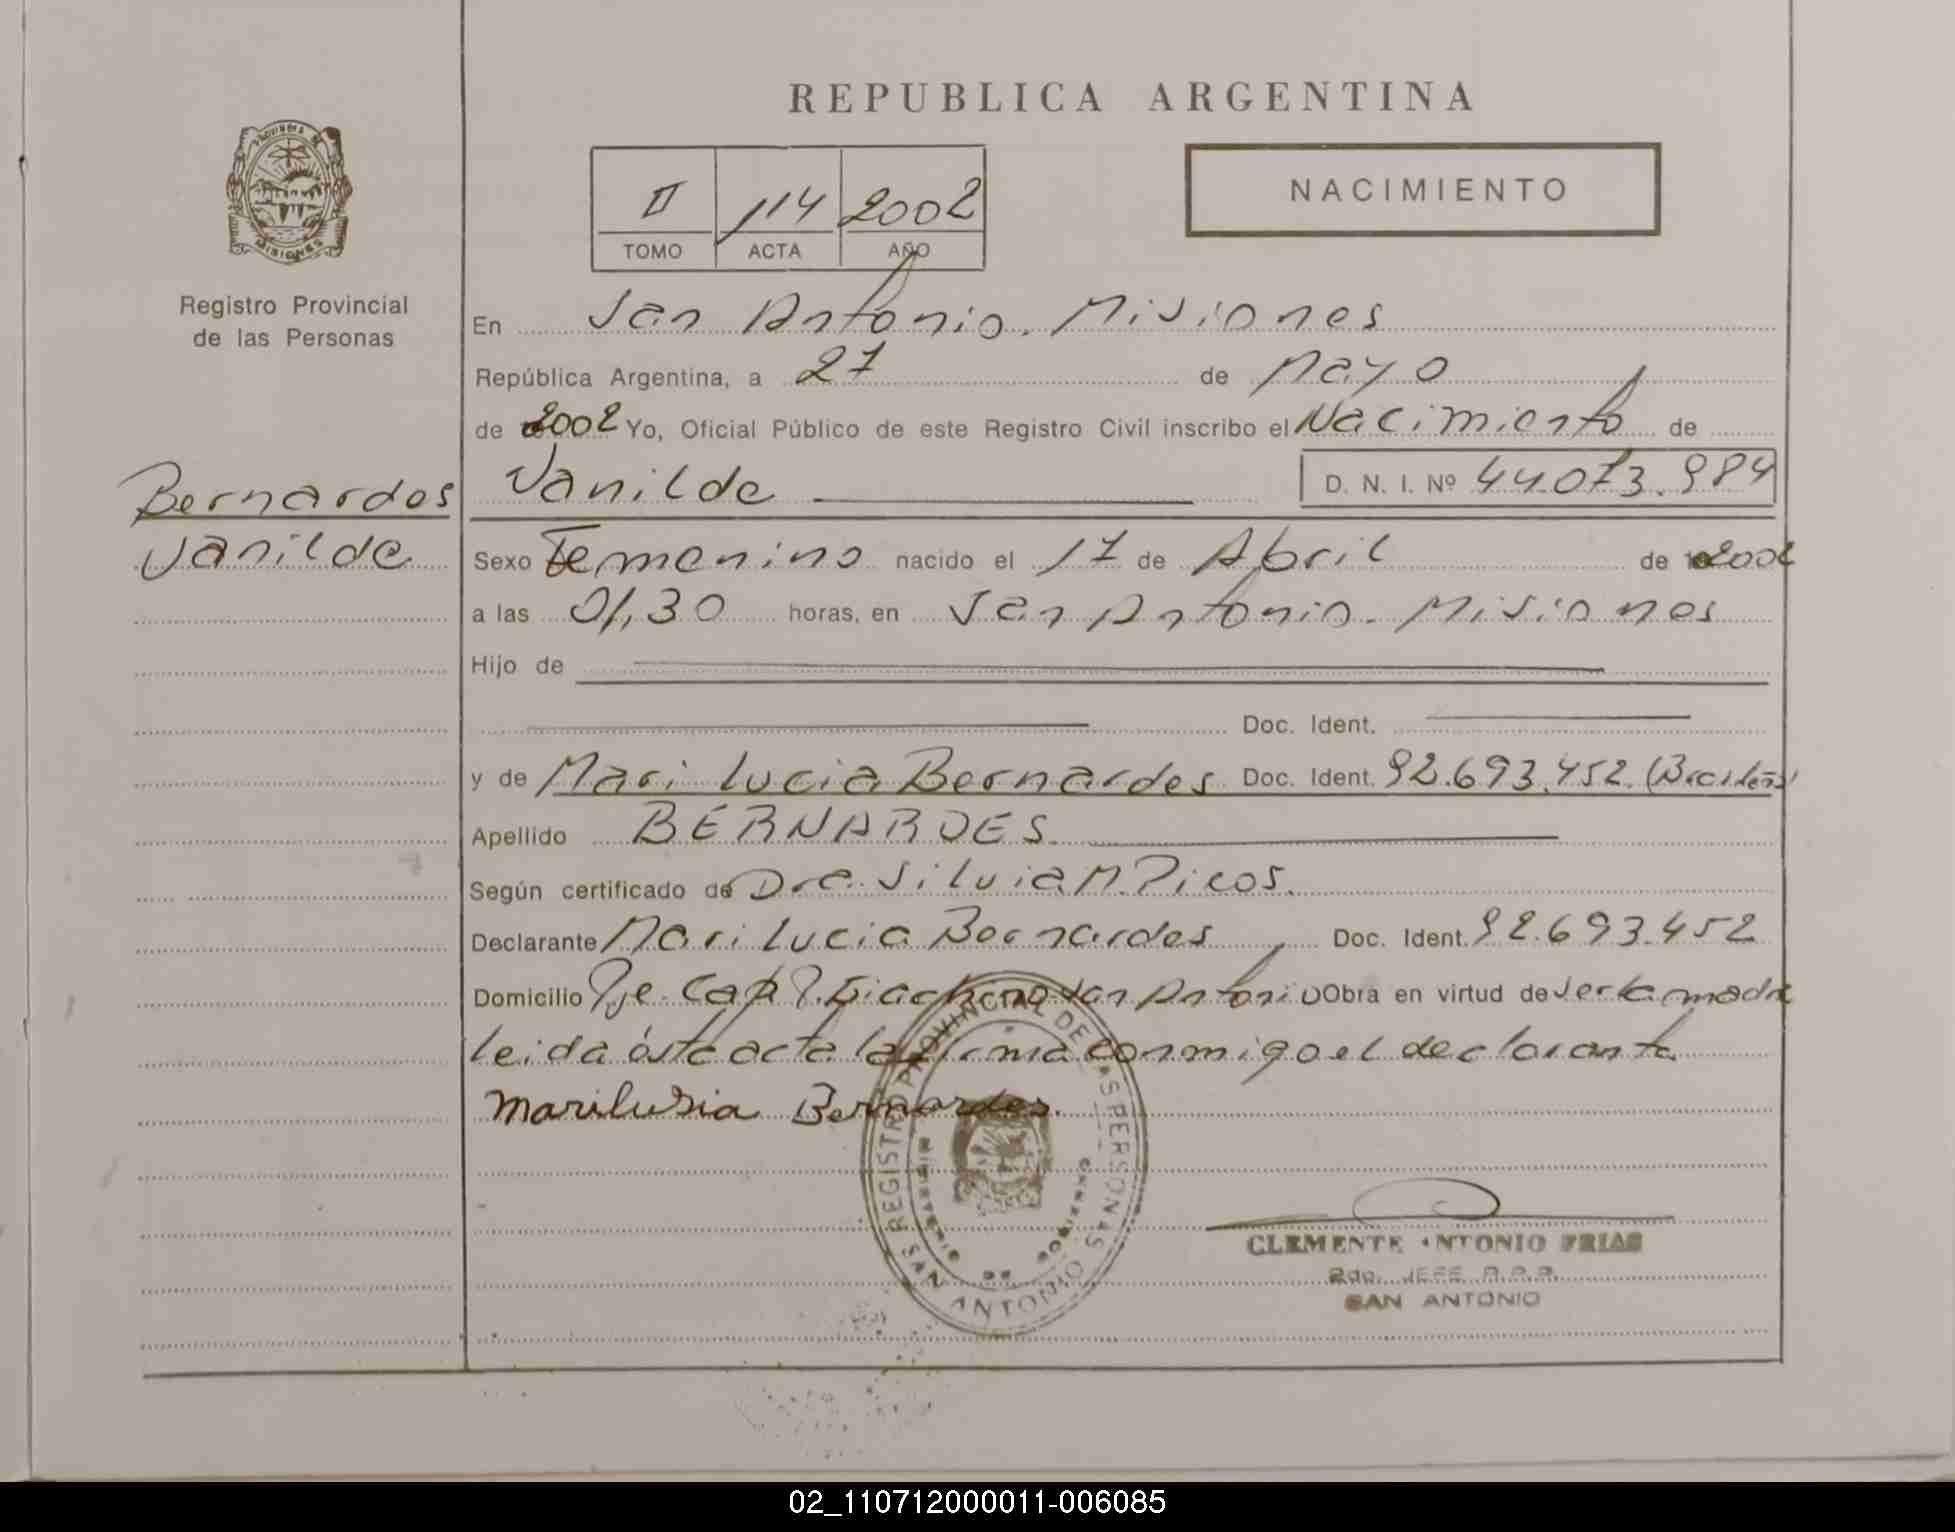 REPUBLICA ARGENTINA
PROVINCIA DE
MISIONES
Registro Provincial
de las Personas
II 114 2002
TOMO ACTA AÑO
NACIMIENTO
En San Antonio. Misiones
República Argentina, a 27 de Mayo
de 2002 Yo, Oficial Público de este Registro Civil inscribo el Nacimiento de
Vanilde D. N. I. Nº 44.073.984
Bernardes
Vanilde
Sexo Femenino nacido el 17 de Abril de 2002
a las 01,30 horas, en San Antonio. Misiones
Hijo de
Doc. Ident.
y de Mari Lucia Bernardes Doc. Ident. 92.693.452. (Brasileña)
Apellido BERNARDES
Según certificado de Dra. Silvia M. Picos.
Declarante Mari Lucia Bernardes Doc. Ident. 92.693.452
Domicilio Pje. Cap. San Antonio Obra en virtud de ser la madre
leida ésta acta la firma conmigo el declarante
Marilusia Bernardes.
REGISTRO PROVINCIAL DE LAS PERSONAS
SAN ANTONIO
CLEMENTE ANTONIO FRIAS
2do. JEFE R.P.P.
SAN ANTONIO
02_110712000011-006085